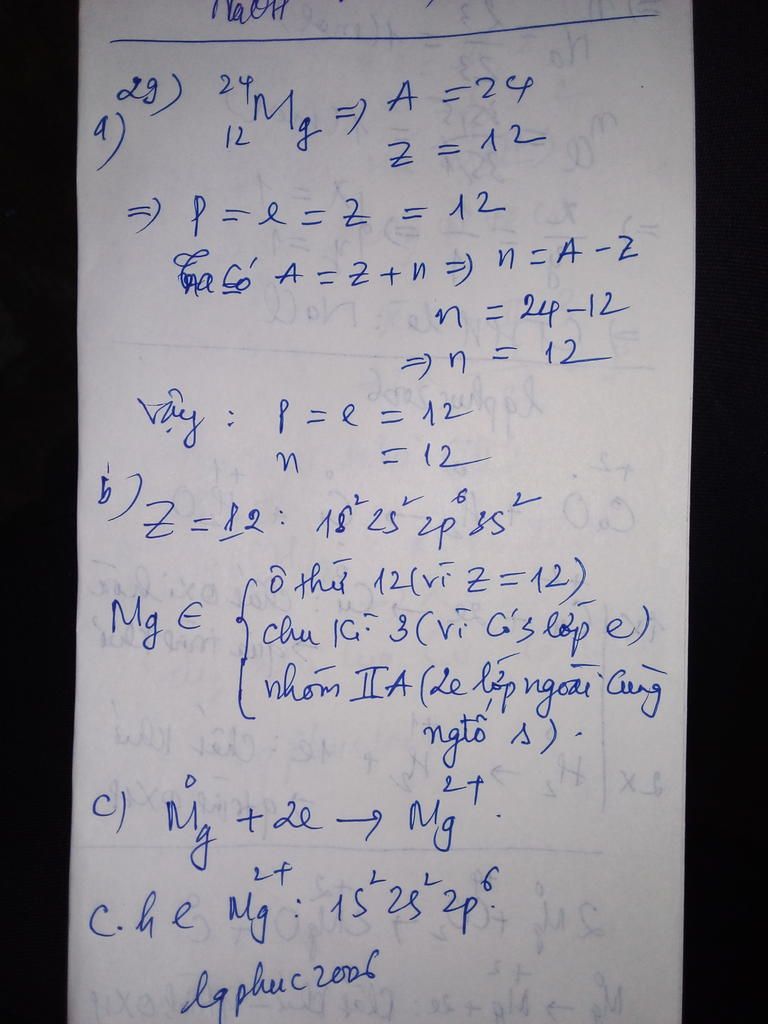 NaOH
29) ²⁴₁₂Mg => A = 24
a) Z = 12
=> P = e = Z = 12
Ta có A = Z + n => n = A - Z
n = 24 - 12
=> n = 12
Vậy : P = e = 12
n = 12
b) Z = 12 : 1s² 2s² 2p⁶ 3s²
ô thứ 12 (vì Z = 12)
Mg ∈ { chu kì 3 (vì có 3 lớp e)
nhóm IIA (2e lớp ngoài cùng
ngtố s) .
c) Mg⁰ + 2e → Mg²⁺ .
C.h e Mg²⁺ : 1s² 2s² 2p⁶.
lqphuc2006